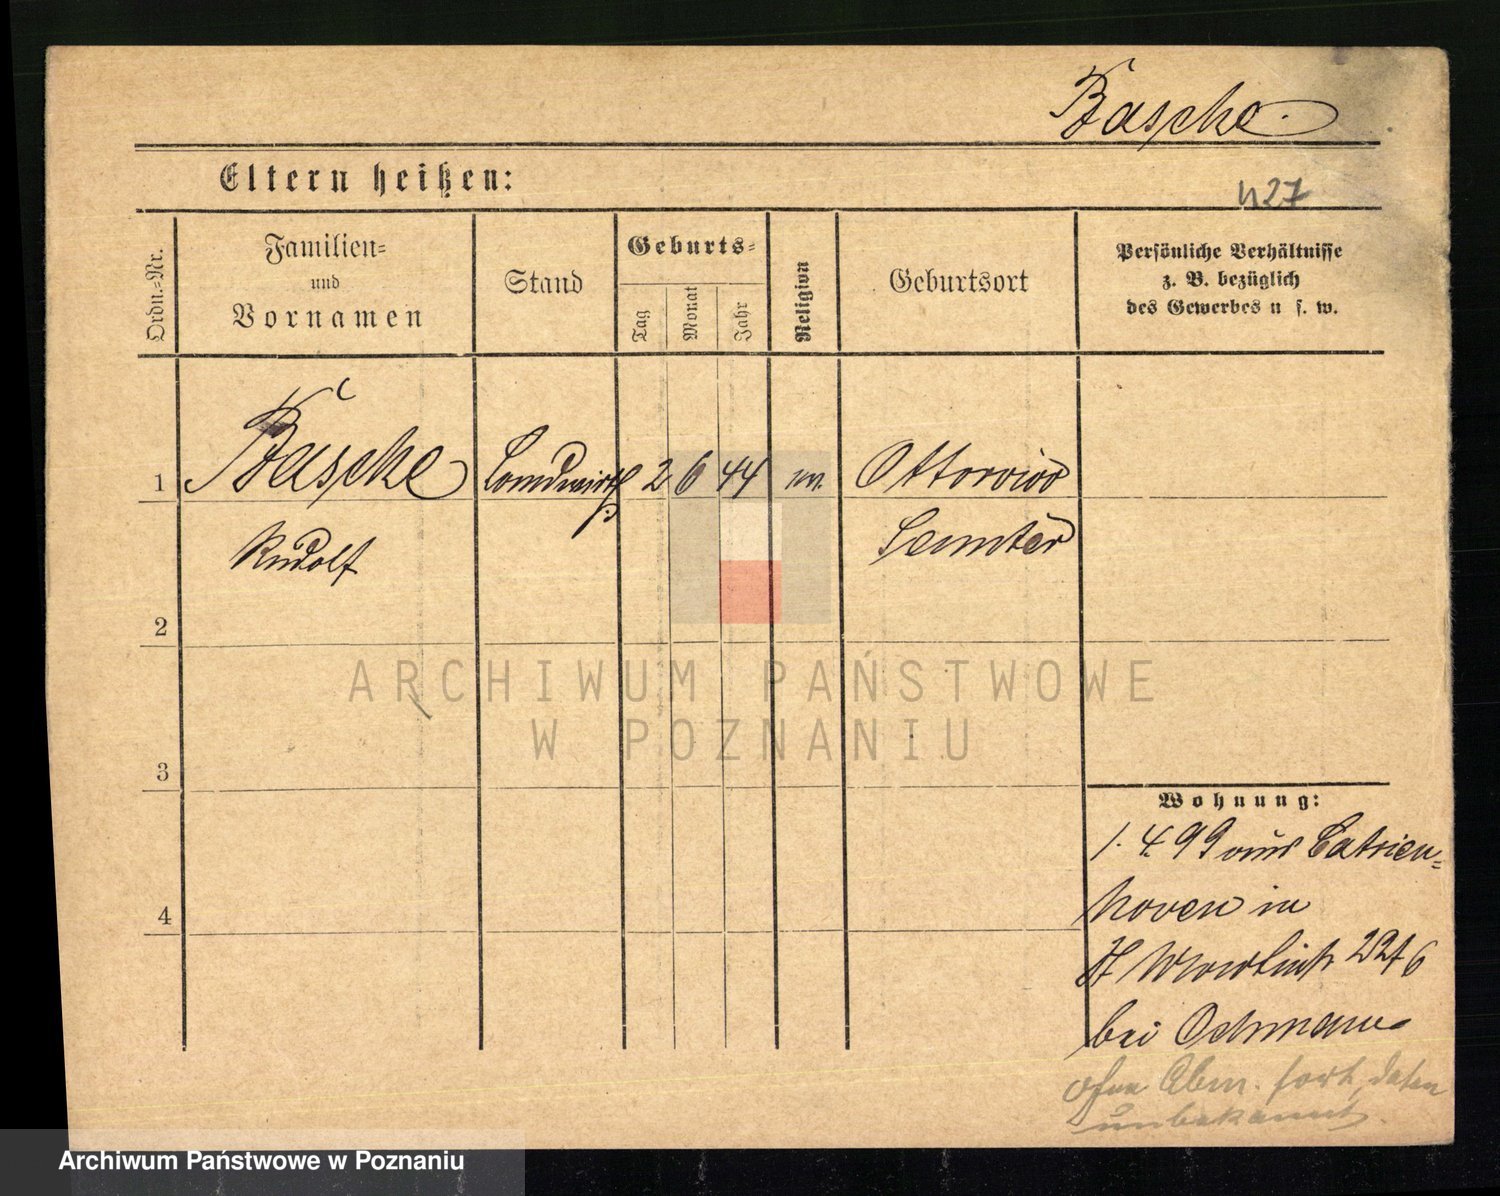 Basche.
Eltern heißen:
427
Ordn.-Nr.
Familien-
und
Vornamen
Stand
Geburts-
Tag
Monat
Jahr
Religion
Geburtsort
Persönliche Verhältnisse
z. B. bezüglich
des Gewerbes u. s. w.
1 Basche Landwirth 2 6 44 Ottorowo
Rudolf Samter
2
3
4
Wohnung:
1. 4. 99 aus
hoven in
22
bei Ochmann
ohne Abm. fort, Daten
unbekannt.
ARCHIWUM PAŃSTWOWE
W POZNANIU
Archiwum Państwowe w Poznaniu